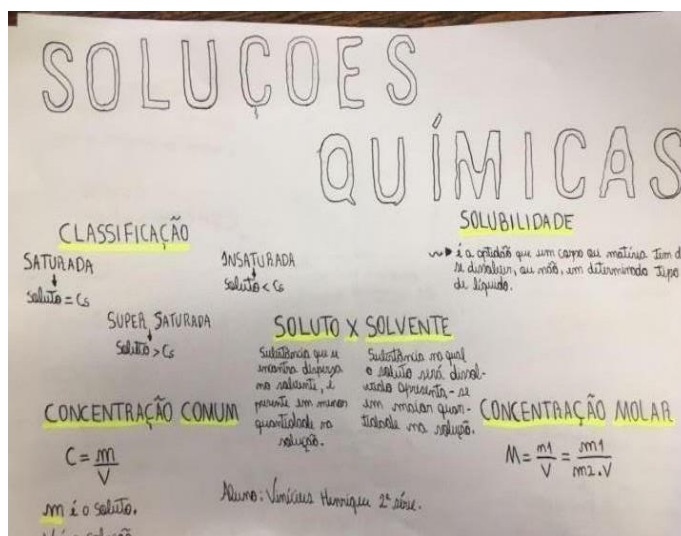 SOLUÇOES
QUÍMICAS
CLASSIFICAÇÃO
SATURADA
Soluto = Cs
INSATURADA
Soluto < Cs
SUPER SATURADA
Soluto > Cs
SOLUBILIDADE
é a aptidão que um corpo ou matéria tem d
se dissolver, ou não, em determinado tipo
de líquido.
SOLUTO X SOLVENTE
Substância que se
encontra dispersa
no solvente, é
presente em menor
quantidade na
solução.
Substância na qual
o soluto será dissol-
vido apresenta-se
em maior quan-
tidade na solução.
CONCENTRAÇÃO COMUM
C = m
V
m é o soluto.
V é a solução
CONCENTRAÇÃO MOLAR
M = m1 = m1
V m2.V
Aluno: Vinícius Henrique 2ª série.